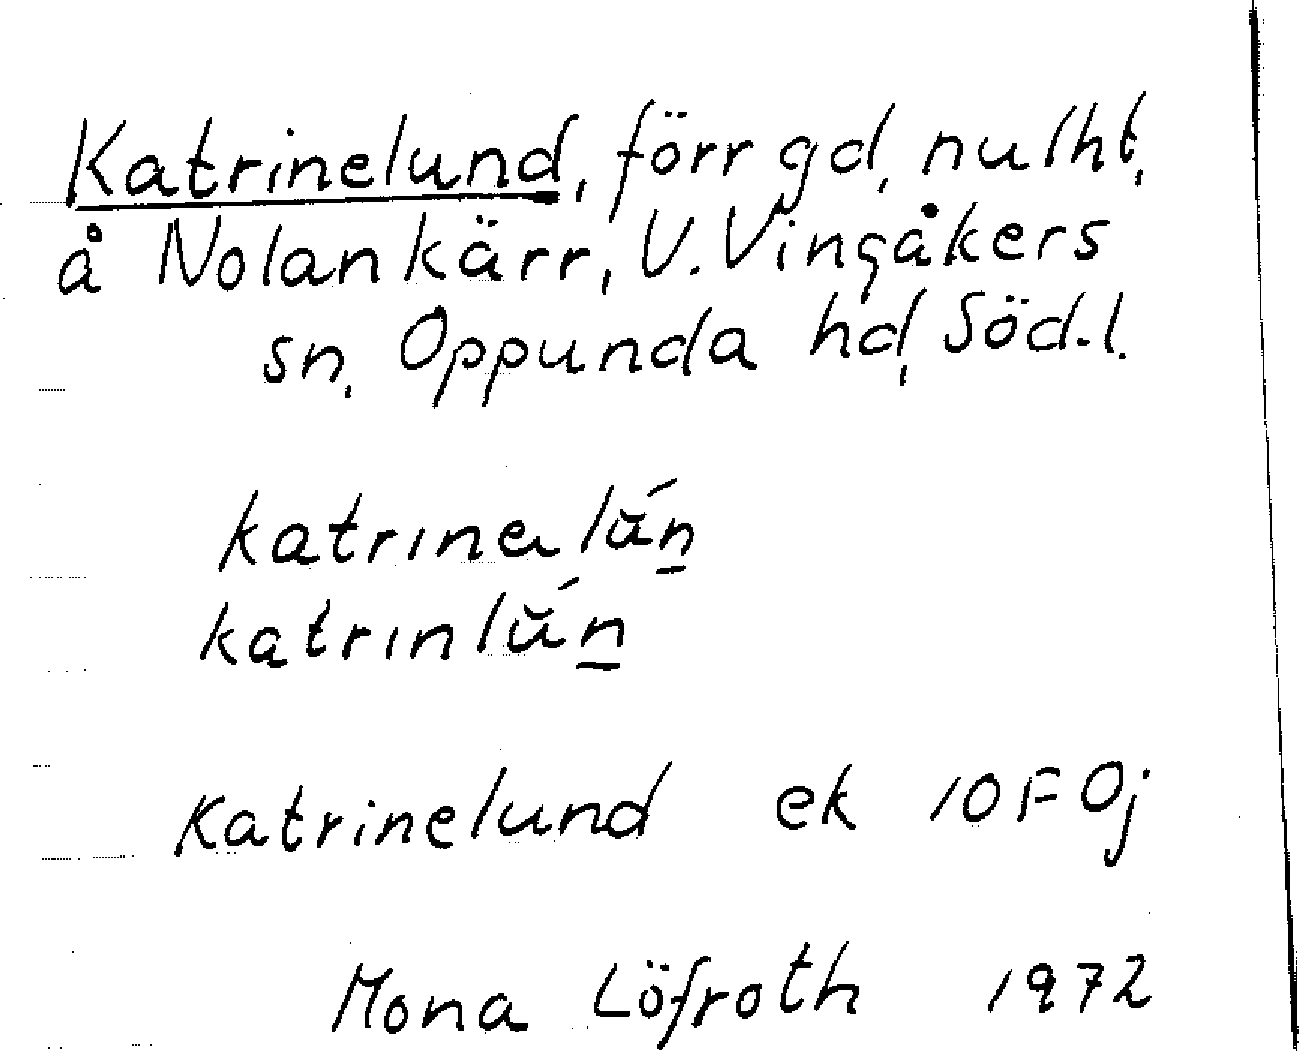 Katrinelund, förr gd, nu lht,
å Nolankärr, V. Vingåkers
sn, Oppunda hd, Söd.l.
katrınɐlŭ́n̲
katrınlŭ́n̲
Katrinelund ek 10F 0j
Mona Löfroth 1972